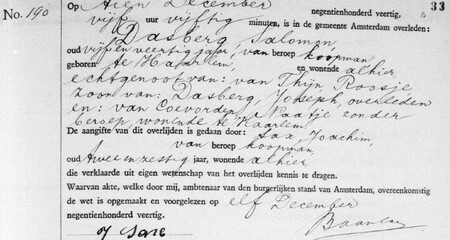 No. 190
Op tien December negentienhonderd veertig, 33
vijf uur vijftig minuten, is in de gemeente Amsterdam overleden:
Dasberg, Salomon,
oud vijf en veertig jaar, van beroep koopman,
geboren te Haarlem, en wonende alhier
echtgenoot van: van Thijn, Roosje,
zoon van: Dasberg, Joseph, overleden
en: van Coevorden, Naatje zonder
beroep, wonende te Haarlem.
De aangifte van dit overlijden is gedaan door: Sax, Joachim,
van beroep koopman,
oud twee en zestig jaar, wonende alhier
die verklaarde uit eigen wetenschap van het overlijden kennis te dragen.
Waarvan akte, welke door mij, ambtenaar van den burgerlijken stand van Amsterdam, overeenkomstig
de wet is opgemaakt en voorgelezen op elf December
negentienhonderd veertig.